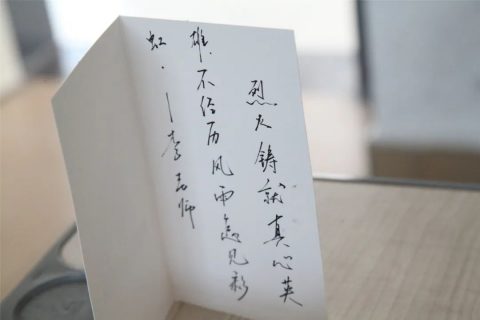 烈火铸就真心英
雄.不经历风雨怎见彩
虹.—李师